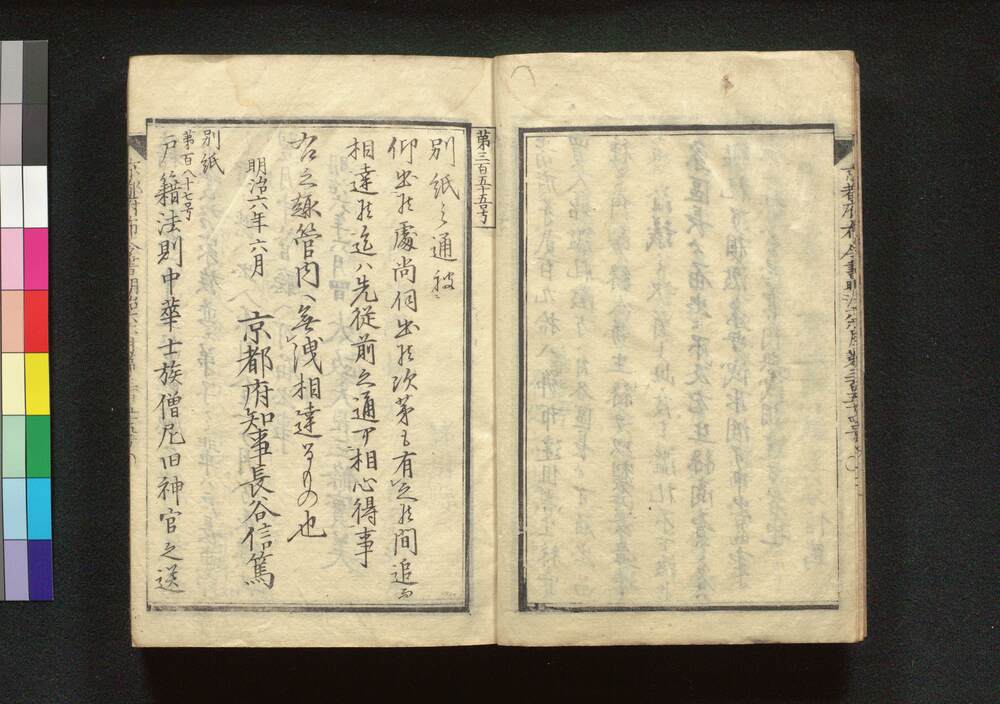 第三百五十五号
別紙之通被
仰出候處尚伺出候次第も有之候間追而
相達候迄ハ先従前之通可相心得事
右之趣管内へ無洩相達するもの也
明治六年六月
京都府知事長谷信篤
別紙
第百八十七号
戸籍法則中華士族僧尼旧神官之送